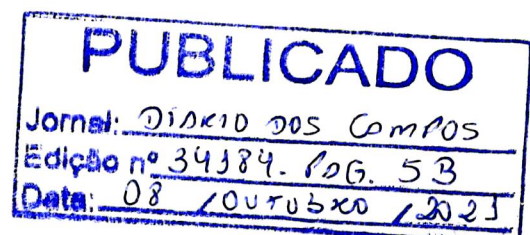 PUBLICADO
Jornal: DIÁRIO DOS CAMPOS
Edição nº 34184. PÁG. 5B
Data: 08 / OUTUBRO / 2021